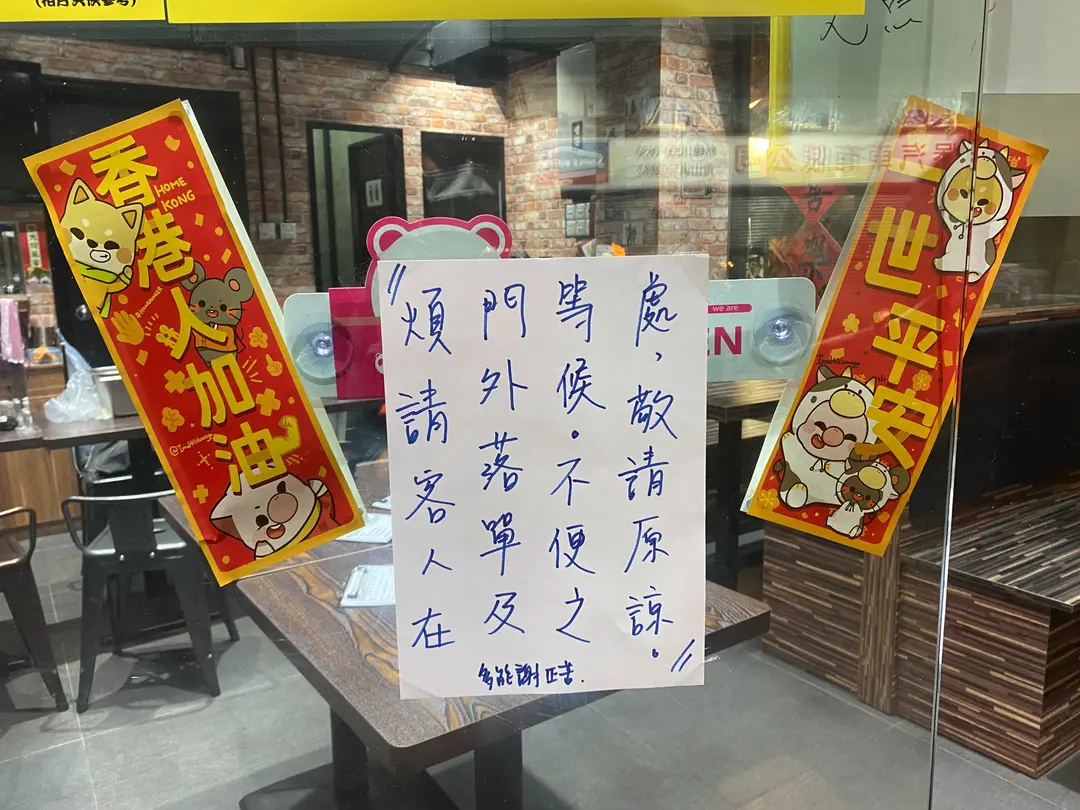 香港人加油
HOME
KONG
〃煩請客人在
門外落單及
等候。不便之
處,敬請原諒。〃
we are
EN
世平安